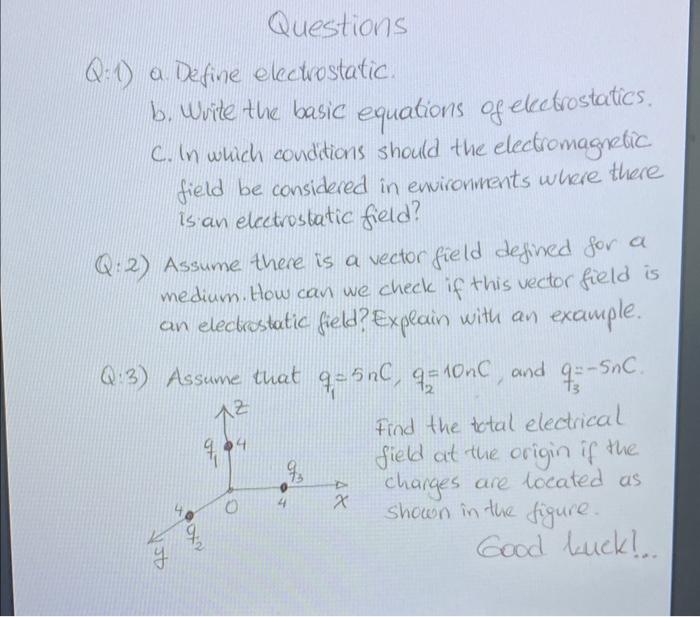 Questions
Q:1) a. Define electrostatic.
b. Write the basic equations of electrostatics.
C. In which conditions should the electromagnetic
field be considered in environments where there
is an electrostatic field?
Q:2) Assume there is a vector field defined for a
medium. How can we check if this vector field is
an electrostatic field? Explain with an example.
Q:3) Assume that q₁=5nC, q₂=10nC, and q₃=-5nC.
Find the total electrical
field at the origin if the
charges are located as
shown in the figure.
Good Luck!..
Z
q₁ 4
q₃
4 O 4 X
q₂
y